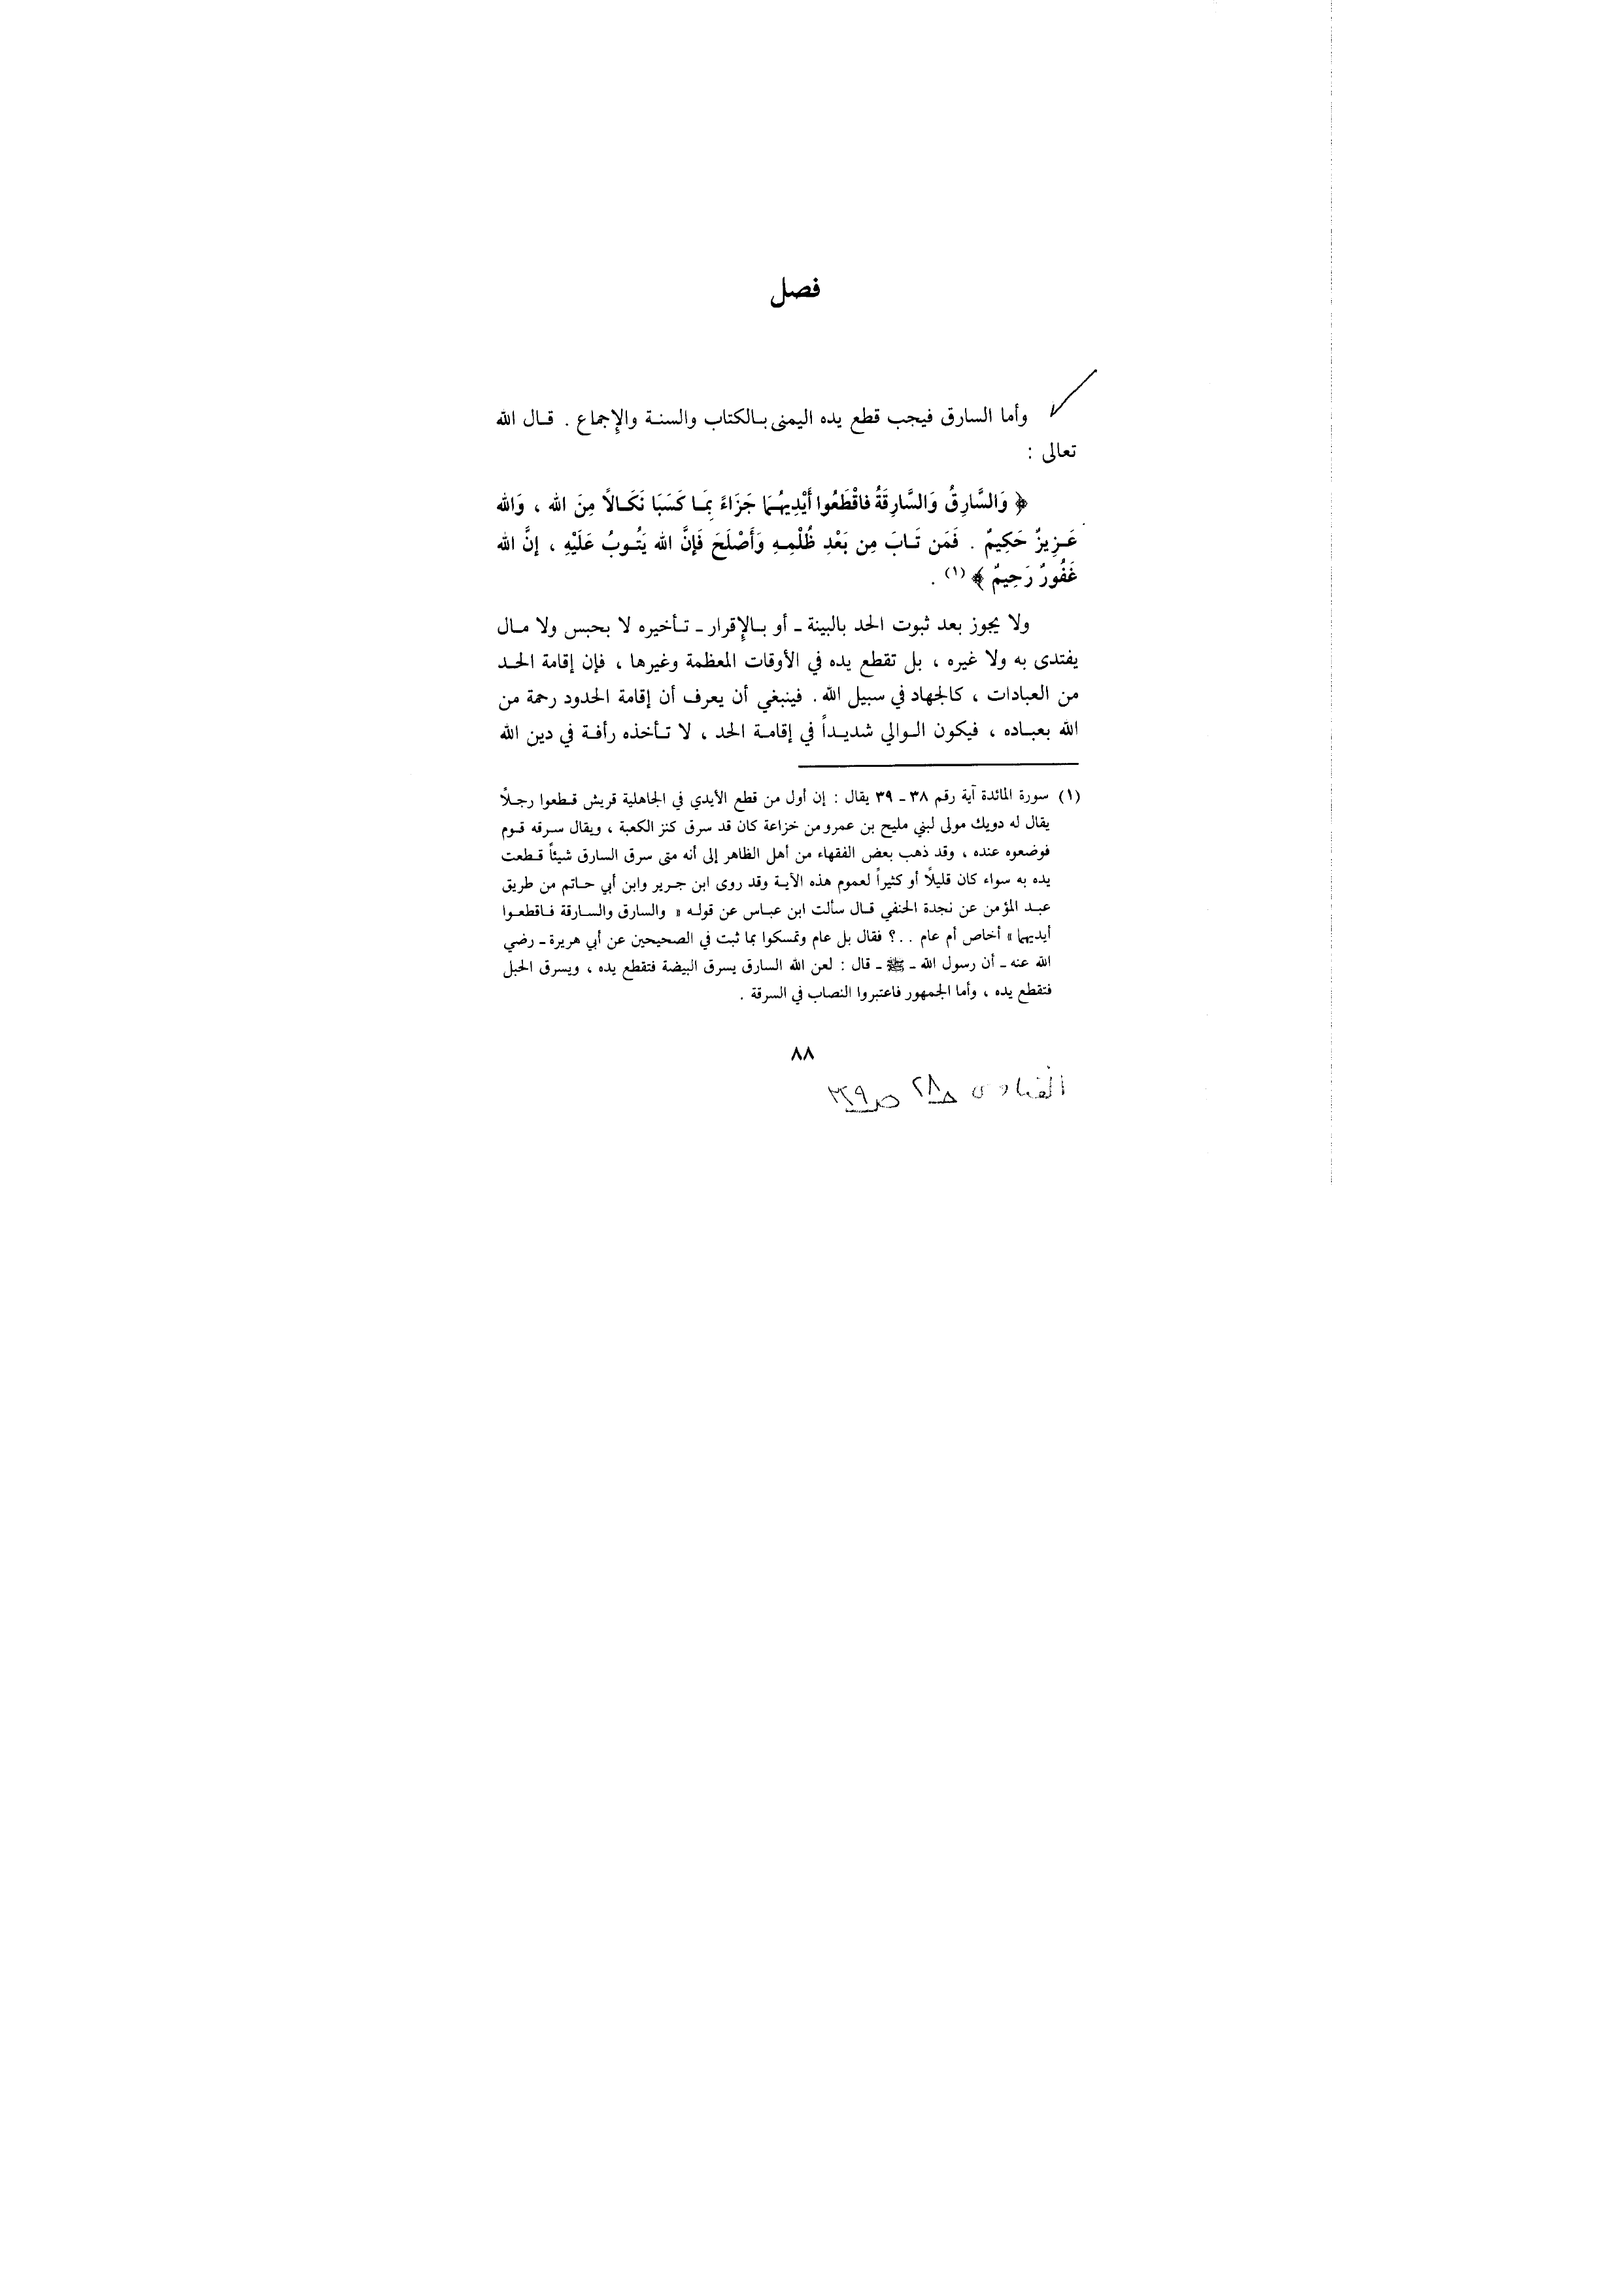 فصل
وأما السارق فيجب قطع يده اليمنى بالكتاب والسنة والإجماع . قال الله
تعالى :
﴿ وَالسَّارِقُ وَالسَّارِقَةُ فاقْطَعُوا أَيْدِيهُمَا جَزَاءً بِمَا كَسَبَا نَكَالًا مِنَ الله ، وَالله
عَزِيزٌ حَكِيمٌ . فَمَن تَابَ مِن بَعْدِ ظُلْمِهِ وَأَصْلَحَ فَإنَّ الله يَتُوبُ عَلَيْهِ ، إنَّ الله
غَفُورٌ رَحِيمٌ ﴾ (١) .
ولا يجوز بعد ثبوت الحد بالبينة ـ أو بالإقرار ـ تأخيره لا بحبس ولا مال
يفتدى به ولا غيره ، بل تقطع يده في الأوقات المعظمة وغيرها ، فإن إقامة الحد
من العبادات ، كالجهاد في سبيل الله . فينبغي أن يعرف أن إقامة الحدود رحمة من
الله بعباده ، فيكون الوالي شديداً في إقامة الحد ، لا تأخذه رأفة في دين الله
(١) سورة المائدة آية رقم ٣٨ ـ ٣٩ يقال : إن أول من قطع الأيدي في الجاهلية قريش قطعوا رجلًا
يقال له دويك مولى لبني مليح بن عمرو من خزاعة كان قد سرق كنز الكعبة ، ويقال سرقه قوم
فوضعوه عنده ، وقد ذهب بعض الفقهاء من أهل الظاهر إلى أنه متى سرق السارق شيئاً قطعت
يده به سواء كان قليلًا أو كثيراً لعموم هذه الآية وقد روى ابن جرير وابن أبي حاتم من طريق
عبد المؤمن عن نجدة الحنفي قال سألت ابن عباس عن قوله « والسارق والسارقة فاقطعوا
أيديهما » أخاص أم عام . . ؟ فقال بل عام وتمسكوا بما ثبت في الصحيحين عن أبي هريرة ـ رضي
الله عنه ـ أن رسول الله ـ ﷺ ـ قال : لعن الله السارق يسرق البيضة فتقطع يده ، ويسرق الحبل
فتقطع يده ، وأما الجمهور فاعتبروا النصاب في السرقة .
٨٨
الفتاوى حـ٢٨ صـ٣٢٩